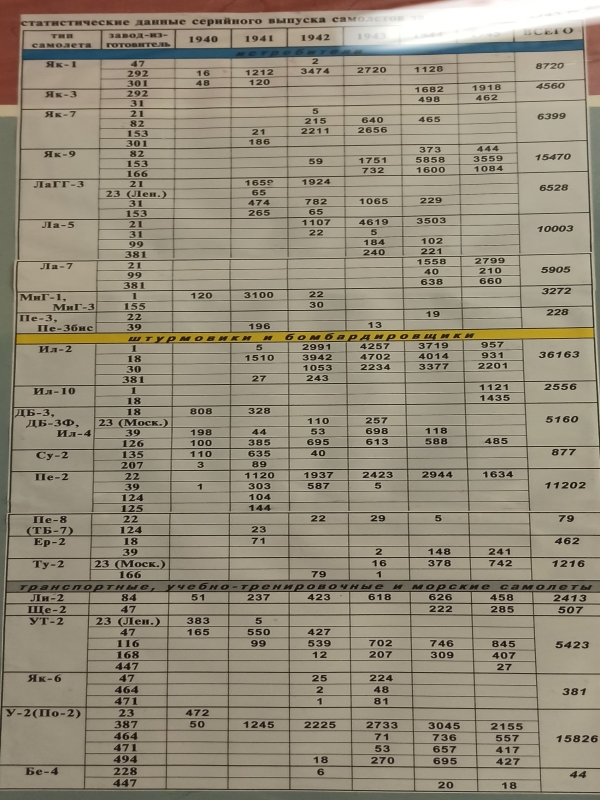 статистические данные серийного выпуска самолетов
тип самолета завод-изготовитель 1940 1941 1942 1943 ВСЕГО
истребители
Як-1 47 2 8720
292 16 1212 3474 2720 1128
301 48 120
Як-3 292 1682 1918 4560
31 498 462
Як-7 21 5 6399
82 215 640 465
153 21 2211 2656
301 186
Як-9 82 373 444 15470
153 59 1751 5858 3559
166 732 1600 1084
ЛаГГ-3 21 1659 1924 6528
23 (Лен.) 65
31 474 782 1065 229
153 265 65
Ла-5 21 1107 4619 3503 10003
31 22 5
99 184 102
381 240 221
Ла-7 21 1558 2799 5905
99 40 210
381 638 660
МиГ-1, 1 120 3100 22 3272
МиГ-3 155 30
Пе-3, 22 19 228
Пе-3бис 39 196 13
штурмовики и бомбардировщики
Ил-2 1 5 2991 4257 3719 957 36163
18 1510 3942 4702 4014 931
30 1053 2234 3377 2201
381 27 243
Ил-10 1 1121 2556
18 1435
ДБ-3, 18 808 328 5160
ДБ-3Ф, 23 (Моск.) 110 257
Ил-4 39 198 44 53 698 118
126 100 385 695 613 588 485
Су-2 135 110 635 40 877
207 3 89
Пе-2 22 1120 1937 2423 2944 1634 11202
39 1 303 587 5
124 104
125 144
Пе-8 22 22 29 5 79
(ТБ-7) 124 23
Ер-2 18 71 462
39 2 148 241
Ту-2 23 (Моск.) 16 378 742 1216
166 79 1
транспортные, учебно-тренировочные и морские самолеты
Ли-2 84 51 237 423 618 626 458 2413
Ще-2 47 222 285 507
УТ-2 23 (Лен.) 383 5 5423
47 165 550 427
116 99 539 702 746 845
168 12 207 309 407
447 27
Як-6 47 25 224 381
464 2 48
471 1 81
У-2(По-2) 23 472 15826
387 50 1245 2225 2733 3045 2155
464 71 736 557
471 53 657 417
494 18 270 695 427
Бе-4 228 6 44
447 20 18